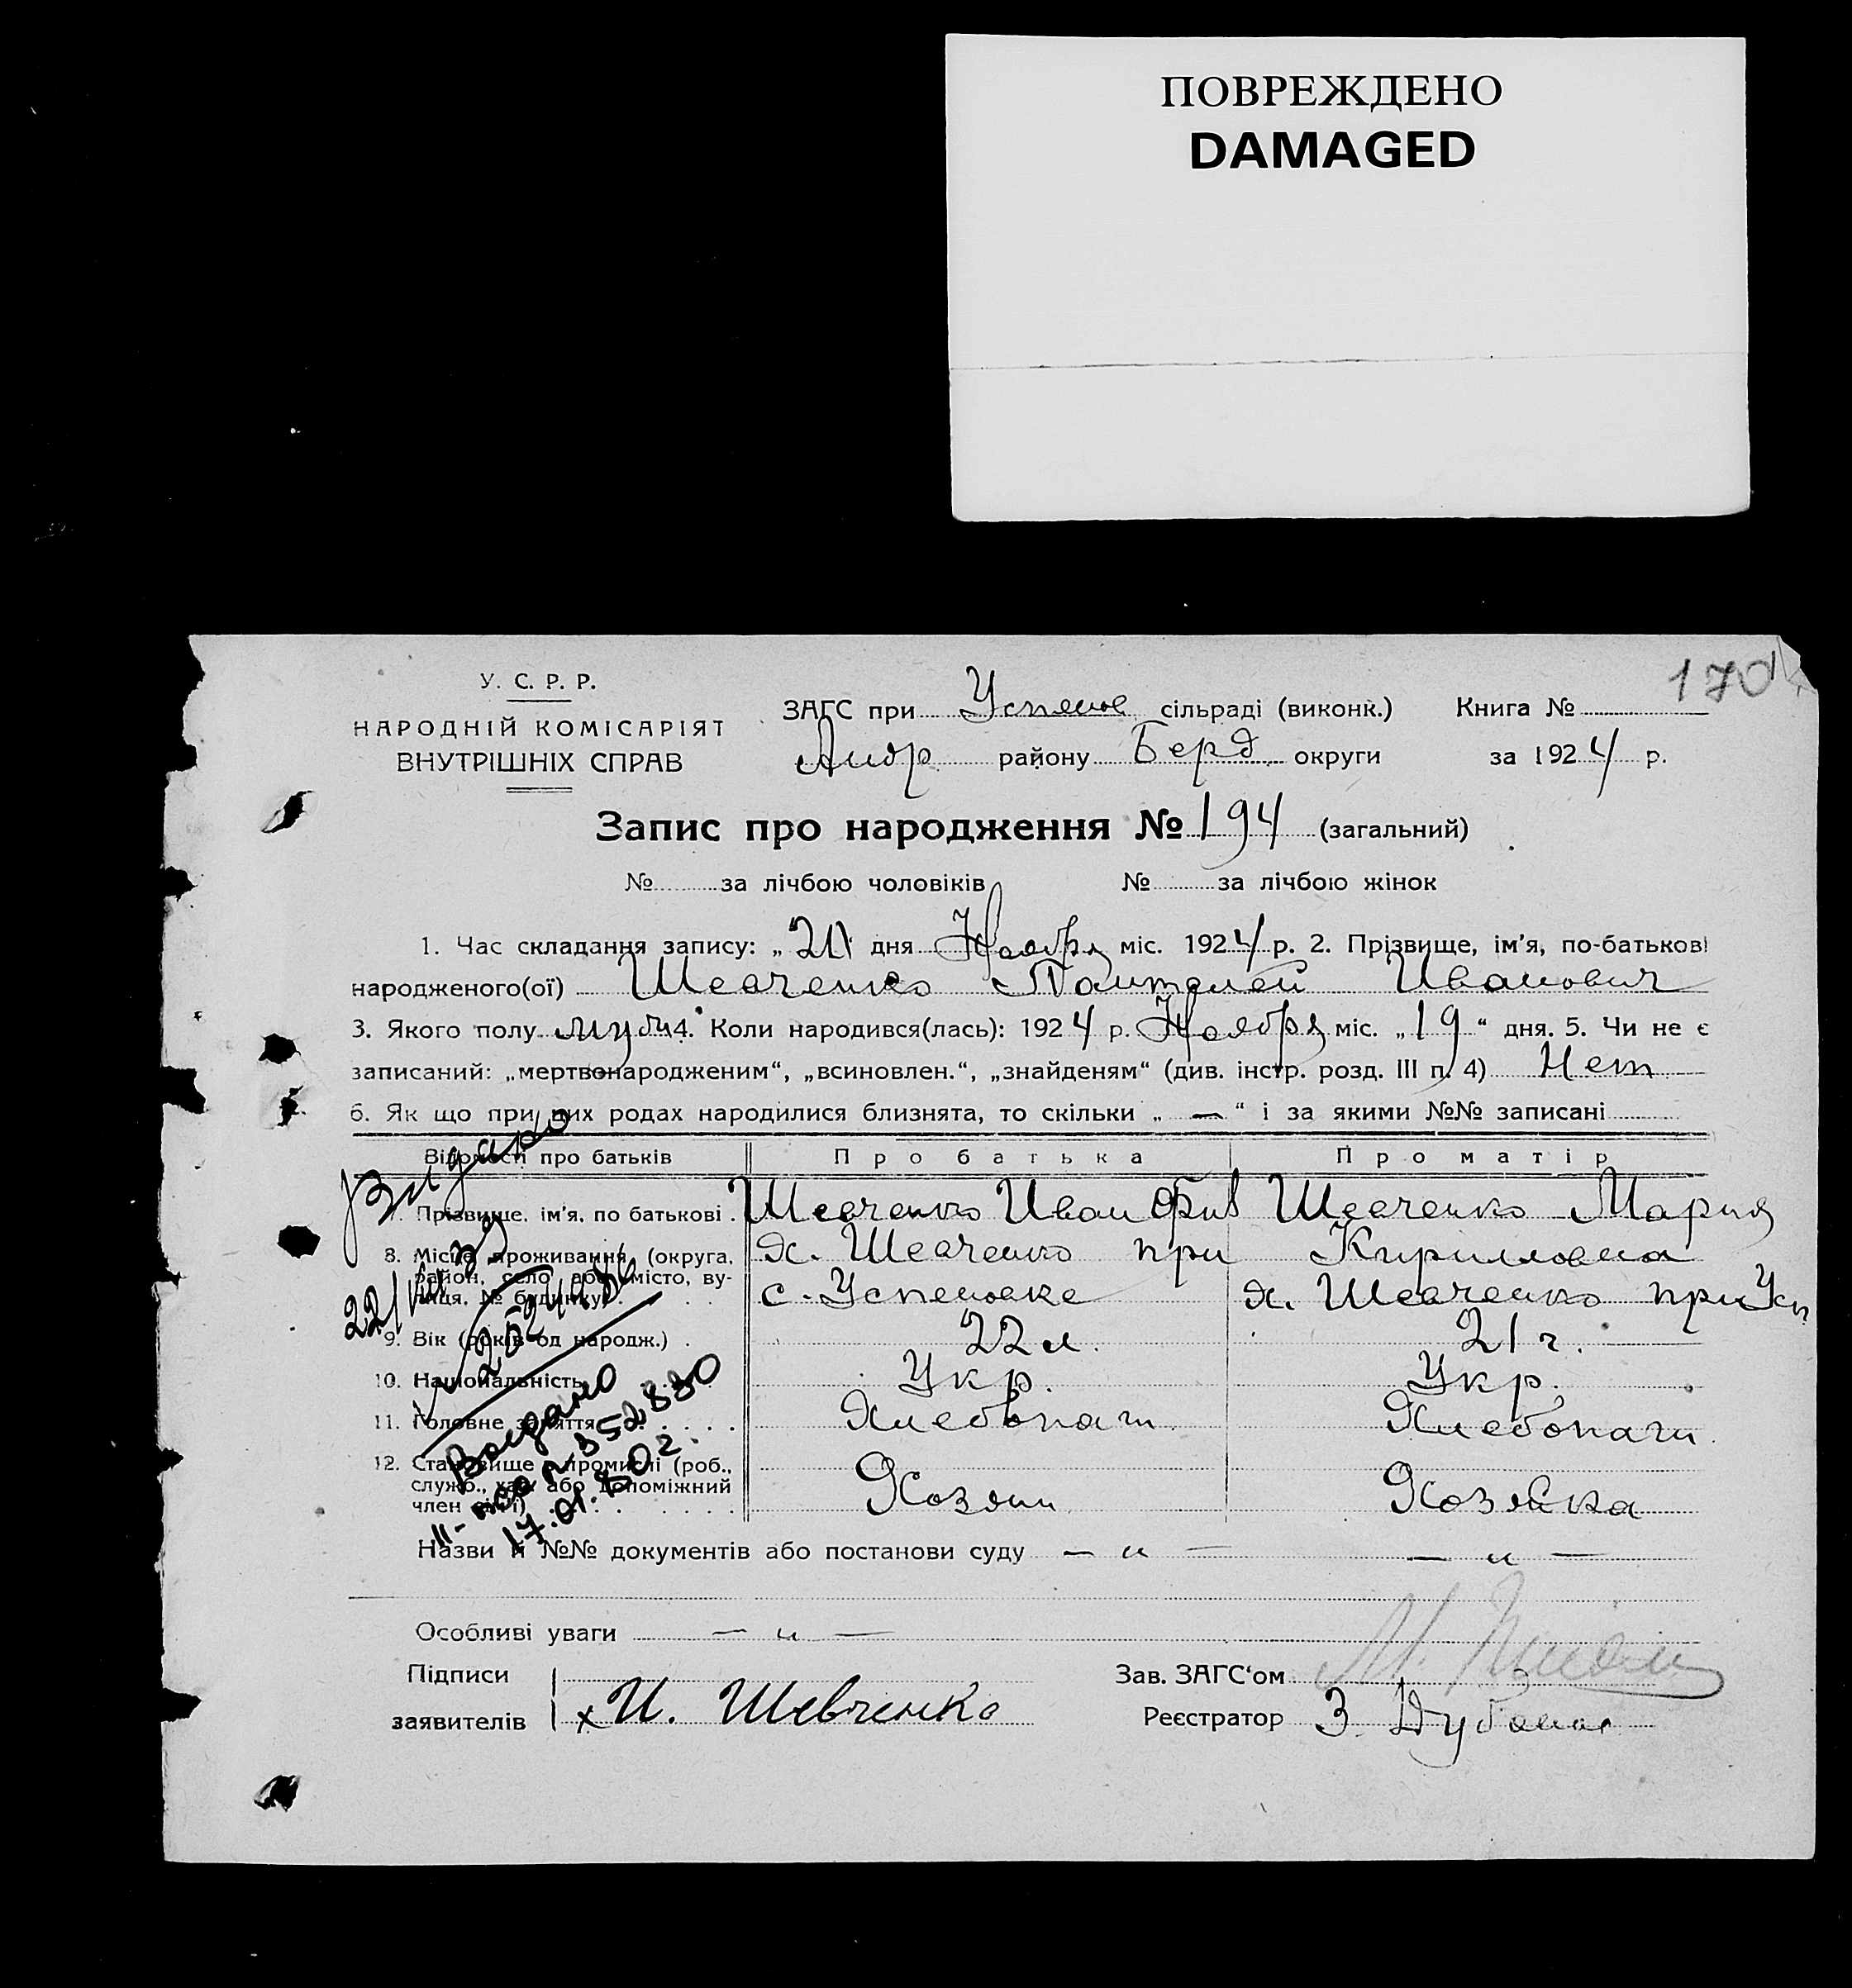 ПОВРЕЖДЕНО
DAMAGED
170
У. С. Р. Р.
НАРОДНІЙ КОМІСАРІЯТ
ВНУТРІШНІХ СПРАВ
ЗАГС при Успенов сільраді (виконк.) Книга №
Андр району Берд округи за 1924 р.
Запис про народження № 194 (загальний)
№ за лічбою чоловіків № за лічбою жінок
1. Час складання запису: „ дня Ноября міс. 1924 р. 2. Прізвище, ім'я, по-батькові
народженого(ої) Шевченко Пантелей Иванович
3. Якого полу муж 4. Коли народився(лась): 1924 р. Ноября міс. „19“ дня. 5. Чи не є
записаний: „мертвонародженим“, „всиновлен.“, „знайденям“ (див. інстр. розд. III п. 4) Нет
6. Як що при цих родах народилися близнята, то скільки „ — “ і за якими №№ записані
Відомості про батьків Про батька Про матір
7. Прізвище, ім'я, по батькові . Шевченко Иван Шевченко Мария
8. Місце проживання (округа, х. Шевченко при Кирилловна
район, село або місто, ву-
лиця, № будинку) . с. Успеновке х. Шевченко при Усп
9. Вік (років од народж.) . 22 л. 21 г.
10. Національність Укр. Укр.
11. Головне заняття Хлебопаш Хлебопаш
12. Становище в промислі (роб.,
служб., хаз. або допоміжний
член сім'ї) Хозяин Хозяйка
Видано
22/VIII 39
Выдано
II-ЖС № 352830
17.01.80г.
Назви й №№ документів або постанови суду — „ — — „ —
Особливі уваги — „ —
Підписи
заявителів х И. Шевченко
Зав. ЗАГС'ом М.
Реєстратор З.